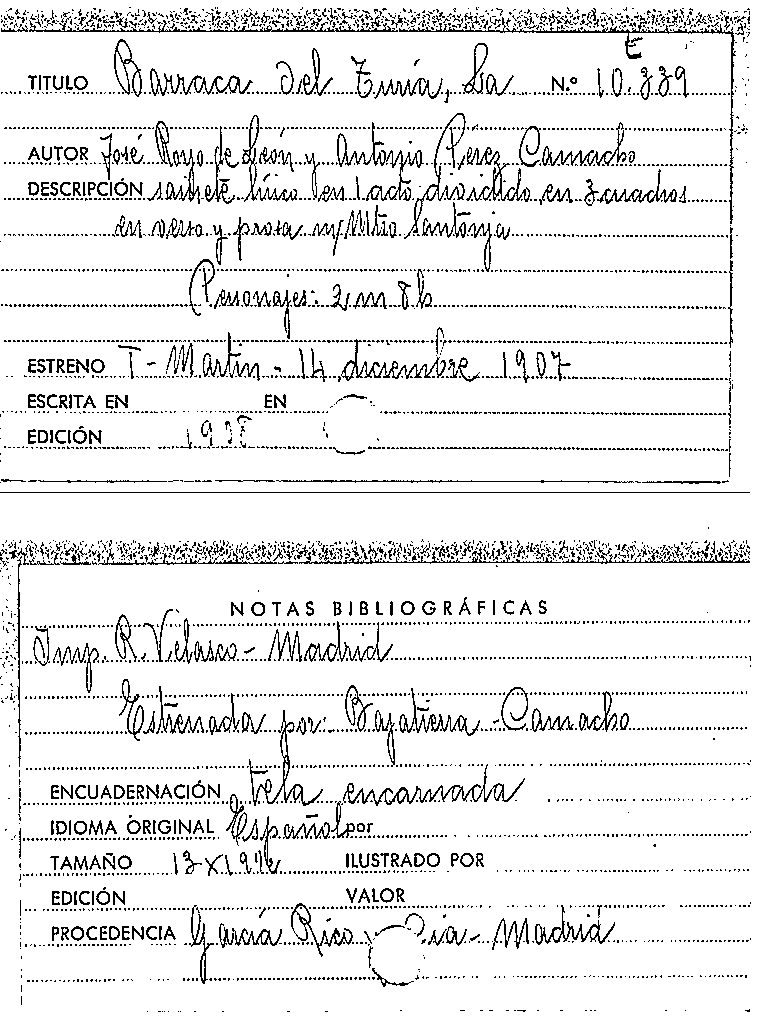 E
TITULO Barraca del Turia, La N.º 10.339
AUTOR José Royo de León y Antonio Pérez Camacho
DESCRIPCIÓN sainete lírico en 1 acto, dividido en 3 cuadros
en verso y prosa m/ Mtro Santonja
Personajes: 2 m 8 h
ESTRENO T- Martín - 14 diciembre 1907
ESCRITA EN EN
EDICIÓN
NOTAS BIBLIOGRÁFICAS
Imp. R. Velasco - Madrid
Estrenada por: Bajatierra - Camacho
ENCUADERNACIÓN tela encarnada
IDIOMA ORIGINAL Español por
TAMAÑO ILUSTRADO POR
EDICIÓN VALOR
PROCEDENCIA García Rico - Madrid